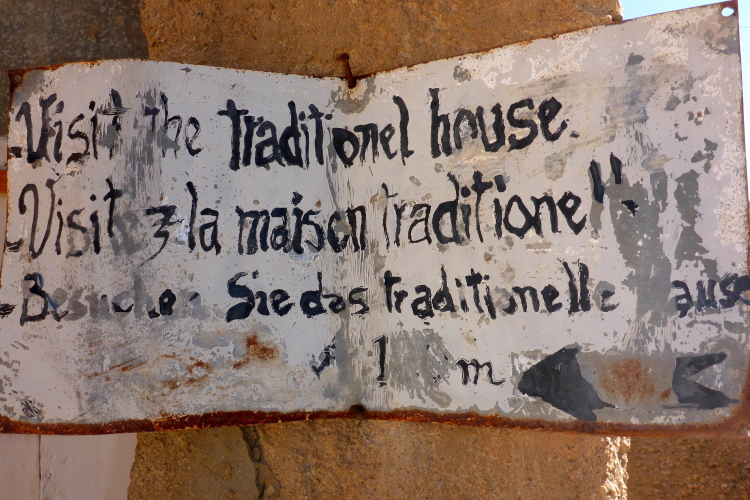 -Visit the traditionel house.
-Visitez la maison traditionel".
-Besuchen Sie das traditionelle ause
1 m